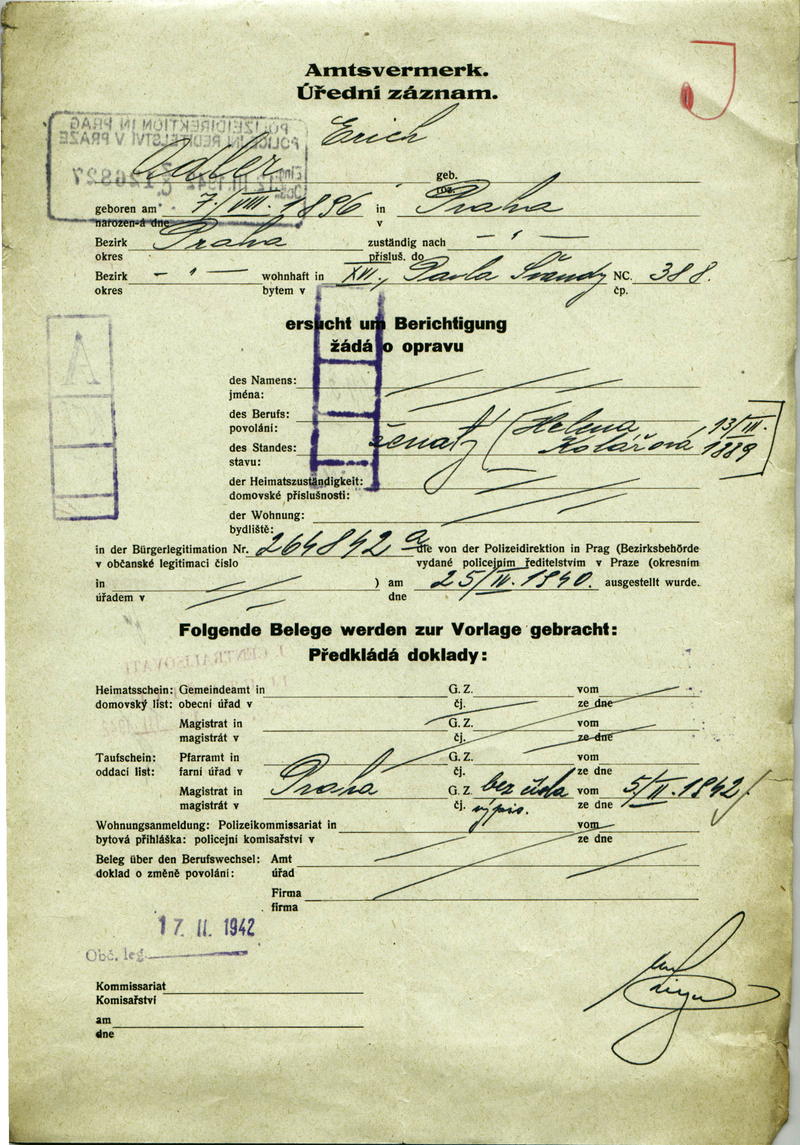 Amtsvermerk.
Úřední záznam.
POLIZEIDIREKTION IN PRAG
POLICEJNÍ ŘEDITELSTVÍ V PRAZE
Erich
Adler geb.
roz.
geboren am 7./VIII. 1896 in Praha
narozen-á dne v
Bezirk Praha zuständig nach — " —
okres přísluš. do
Bezirk — " — wohnhaft in XVI., Pavla Švandy NC. 388.
okres bytem v čp.
ersucht um Berichtigung
žádá o opravu
des Namens:
jména:
des Berufs:
povolání:
ženatý (Helena Kolářová 13/III. 1889
des Standes:
stavu:
der Heimatszuständigkeit:
domovské příslušnosti:
der Wohnung:
bydliště:
in der Bürgerlegitimation Nr. 264842 a die von der Polizeidirektion in Prag (Bezirksbehörde
v občanské legitimaci číslo vydané policejním ředitelstvím v Praze (okresním
in ) am 25/IV. 1940. ausgestellt wurde.
úřadem v dne
Folgende Belege werden zur Vorlage gebracht:
Předkládá doklady:
Heimatsschein: Gemeindeamt in G. Z. vom
domovský list: obecní úřad v čj. ze dne
Magistrat in G. Z. vom
magistrát v čj. ze dne
Taufschein: Pfarramt in G. Z. vom
oddací list: farní úřad v čj. ze dne
Magistrat in Praha G. Z. bez čísla vom 5/II. 1942
magistrát v čj. výpis. ze dne
Wohnungsanmeldung: Polizeikommissariat in vom
bytová přihláška: policejní komisařství v ze dne
Beleg über den Berufswechsel: Amt
doklad o změně povolání: úřad
Firma
firma
17. II. 1942
Obč. leg.
Kommissariat
Komisařství
am
dne